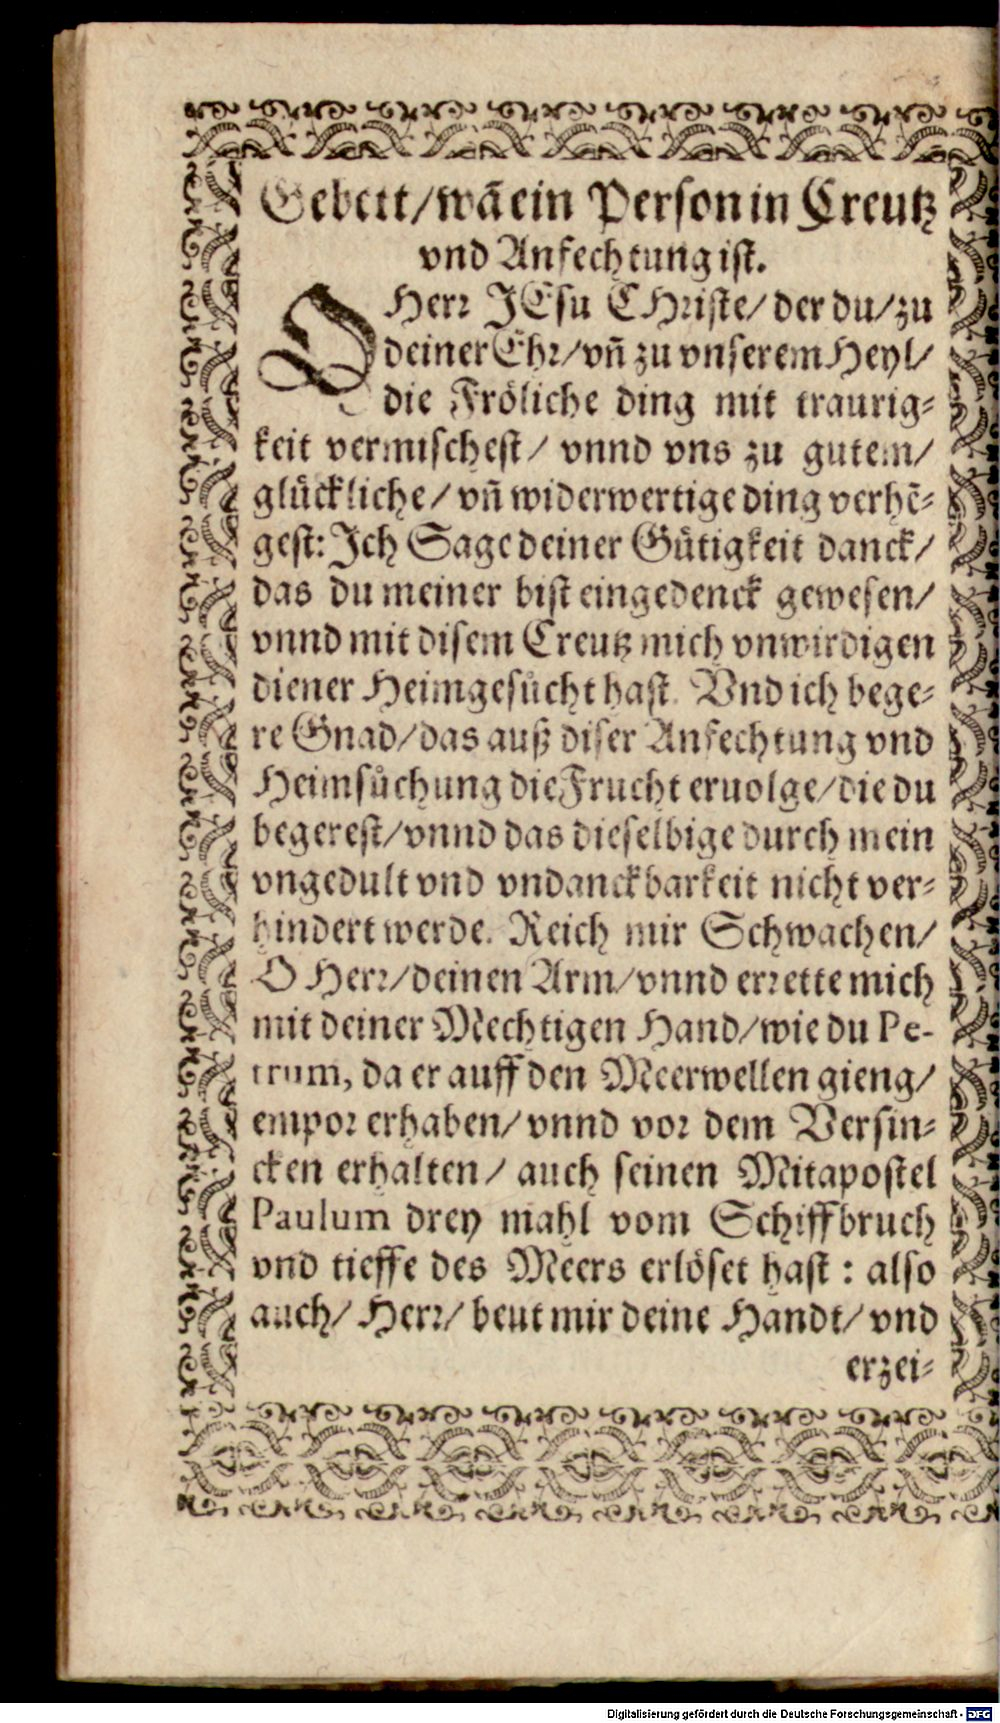 Gebett/wā ein Person in Creutz
vnd Anfechtung ist.
O Herr JEsu CHriste/ der du/zu
deiner Ehr/vñ zu vnserem Heyl/
die Fröliche ding mit traurig⸗
keit vermischest/ vnnd vns zu gutem/
glückliche/ vñ widerwertige ding verhē⸗
gest: Ich Sage deiner Gütigkeit danck/
das du meiner bist eingedenck gewesen/
vnnd mit disem Creutz mich vnwirdigen
diener Heimgesůcht hast. Vnd ich bege⸗
re Gnad/das auß diser Anfechtung vnd
Heimsůchung die Frucht eruolge/die du
begerest/vnnd das dieselbige durch mein
vngedult vnd vndanckbarkeit nicht ver⸗
hindert werde. Reich mir Schwachen/
O Herr/deinen Arm/vnnd errette mich
mit deiner Mechtigen Hand/wie du Pe-
trum, da er auff den Meerwellen gieng/
empor erhaben/ vnnd vor dem Versin⸗
cken erhalten/ auch seinen Mitapostel
Paulum drey mahl vom Schiffbruch
vnd tieffe des Meers erlöset hast: also
auch/ Herr/ beut mir deine Handt/ vnd
erzei⸗
Digitalisierung gefördert durch die Deutsche Forschungsgemeinschaft - DFG